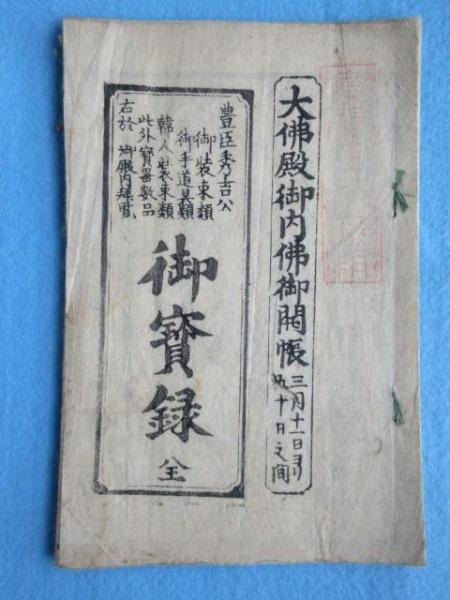 大佛殿御内佛御開帳
三月十一日ヨリ
五十日之間
豊臣秀吉公
御装束類
御手道具類
韓人装束類
此外寳器數品
右於御殿内拝覧
御寳録
全